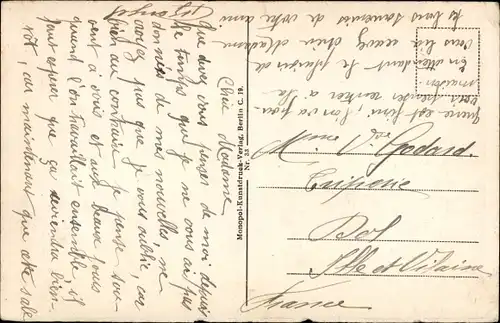 Chère Madame
Que devez vous penser de moi depuis
le temps que je ne vous ai pas
donnés de me nouvelles, ne
croyez pas que je vous oublie, car
bien au contraire je pense sou-
vent à vous et aux beaux jours
quand l'on travaillait ensemble, il
faut esperer que ça reviendra bien-
tôt, car maintenant que cette sale
guerre est fini, l'on va pou-
voir rentrer à la
maison
En attendant le plaisir de
vous lire recevez chère Madame
les bons souvenirs de votre ami
Monopol-Kunstdruck-Verlag, Berlin C. 19.
Nr. 33
Mme V. Godard
Triperie
Dol
Ille et Vilaine
France